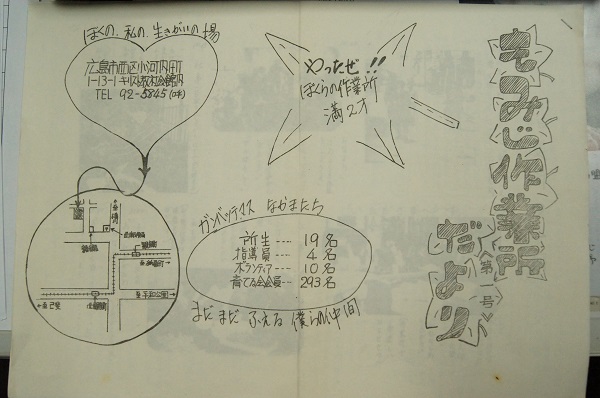 もみじ作業所
だより
〈第一号〉
やったぜ!!
ぼくらの作業所
満2才
ぼくの、私の、生きがいの場
広島市西区小河内町
1-13-1キリスト教社会館内
TEL 92-5845
ガンバッテマス なかまたち
所生---- 19名
指導員---- 4名
ボランティア--- 10名
育てる会会員-- 293名
まだまだ ふえる 僕らの仲間
至横川
至己斐
至平和公園